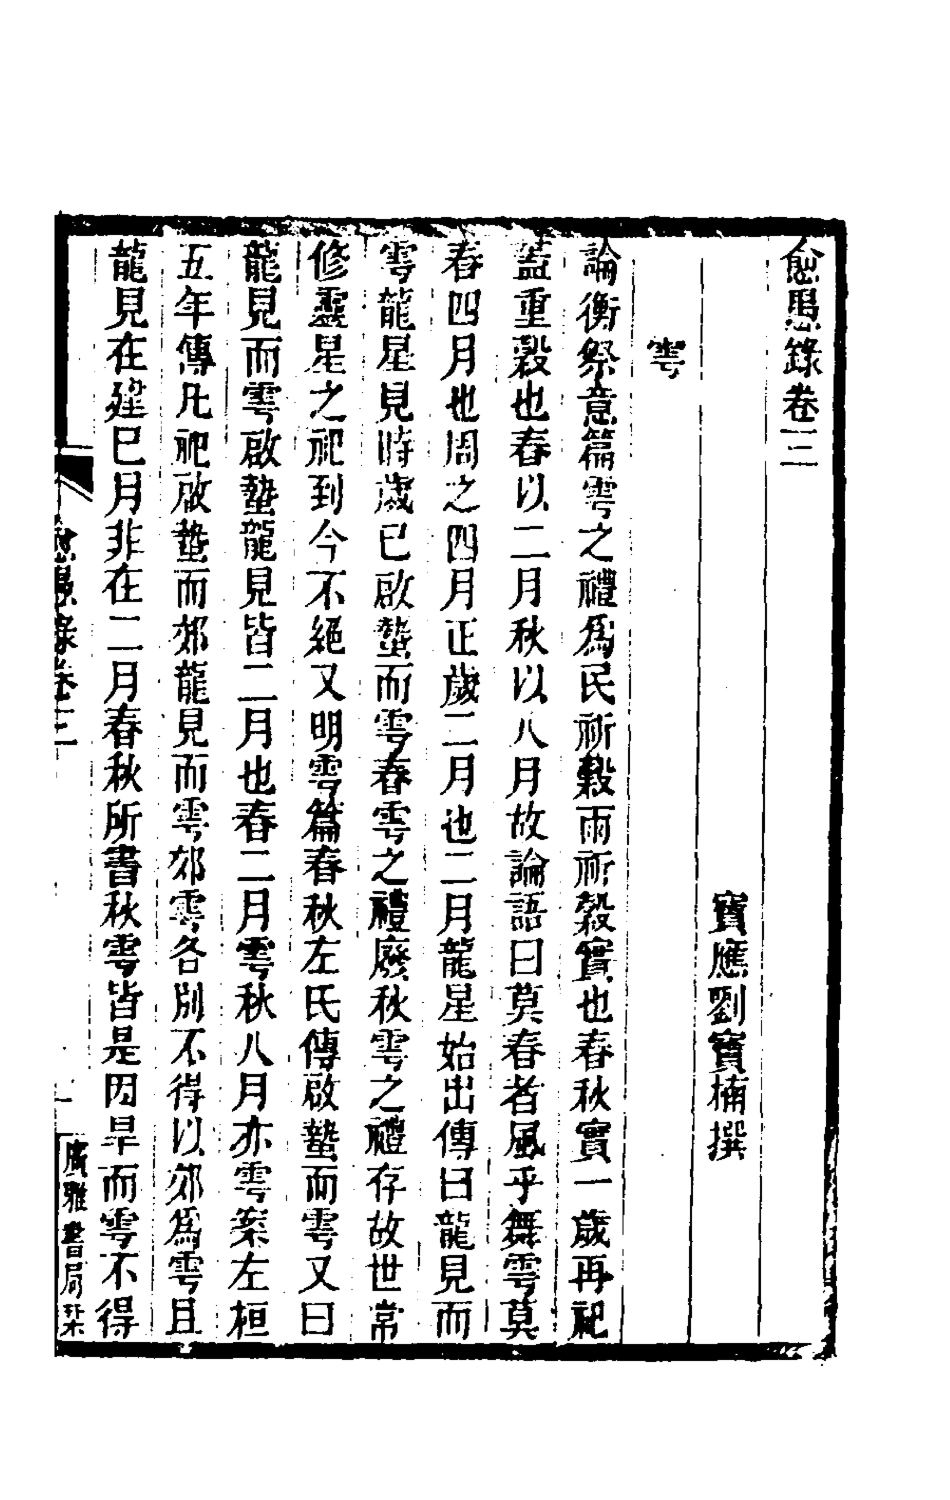 愈愚錄卷三
寶應劉寶楠撰
雩
論衡祭意篇雩之禮爲民祈穀雨祈穀實也春秋實一歲再祀
蓋重穀也春以二月秋以八月故論語曰莫春者風乎舞雩莫
春四月也周之四月正歲二月也二月龍星始出傳曰龍見而
雩龍星見時歲已啟蟄而雩春雩之禮廢秋雩之禮存故世常
修靈星之祀到今不絕又明雩篇春秋左氏傳啟蟄而雩又曰
龍見而雩啟蟄龍見皆二月也春二月雩秋八月亦雩案左桓
五年傳凡祀啟蟄而郊龍見而雩郊雩各別不得以郊爲雩且
龍見在建巳月非在二月春秋所書秋雩皆是因旱而雩不得
愈愚錄卷三
一
廣雅書局栞